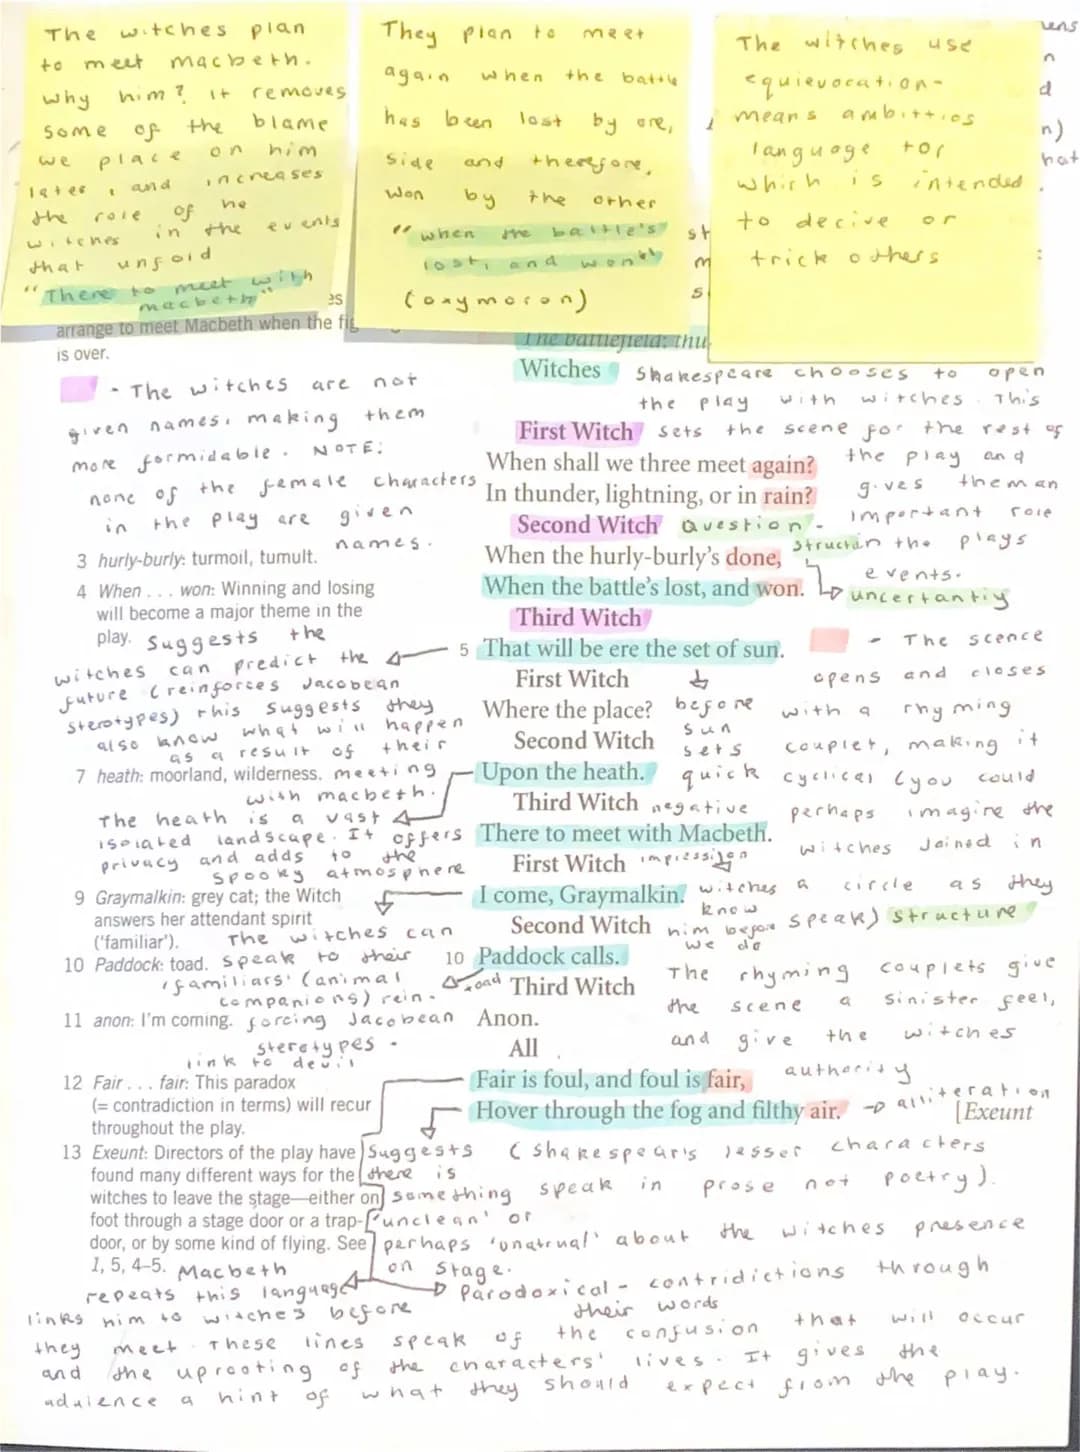 The witches plan
to meet macbeth.
why him? It removes
some of the blame
we place on him
later, and increases
the role of he
witches in the events
that unfold
"There to meet with
macbeth"
They plan to meet
again when the battle
has been lost by one,
side and therefore,
won by the other
"when the battle's
lost, and won"
(oxymoron)
The witches use
equievocation-
means ambittios
language for
which is intended
to decive or
trick others
arrange to meet Macbeth when the fig
is over.
The battlefield: thu
Witches
Shakespeare chooses to open
the play with witches. This
sets the scene for the rest of
the play and
gives them an
important role
in the plays
events.
- The witches are not
given names, making them
more formidable. NOTE:
none of the female characters
in the play are given
names.
First Witch
When shall we three meet again?
In thunder, lightning, or in rain?
Second Witch
Question -
structure
When the hurly-burly's done,
When the battle's lost, and won.
uncertantiy
Third Witch
5 That will be ere the set of sun.
First Witch
before
sun
sets
Where the place?
Second Witch
Upon the heath.
quick
negative
impression
Third Witch
There to meet with Macbeth.
witches
know
him before
we do
First Witch
I come, Graymalkin.
Second Witch
10 Paddock calls.
toad
Third Witch
Anon.
All
Fair is foul, and foul is fair,
Hover through the fog and filthy air.
alliteration
[Exeunt
3 hurly-burly: turmoil, tumult.
4 When . . . won: Winning and losing
will become a major theme in the
play.
Suggests the
witches can predict the
future (reinforces Jacobean
sterotypes) this suggests they
also know what will happen
as a result of their
meeting
with macbeth.
7 heath: moorland, wilderness.
The heath is a vast
isolated landscape. It offers
privacy and adds to the
spooky atmosphere
9 Graymalkin: grey cat; the Witch
answers her attendant spirit
('familiar').
The witches can
speak to their
'familiars' (animal
companions) rein-
forcing Jacobean
sterotypes.
link to devil
10 Paddock: toad.
11 anon: I'm coming.
12 Fair . . . fair: This paradox
(= contradiction in terms) will recur
throughout the play.
13 Exeunt: Directors of the play have
found many different ways for the
witches to leave the stage—either on
foot through a stage door or a trap-
door, or by some kind of flying. See
1, 5, 4–5.
- The scence
opens and closes
with a rhyming
couplet, making it
cyclical (you could
perhaps imagine the
witches joined in
a circle as they
speak) structure
The rhyming couplets give
the scene a sinister feel,
and give the witches
authority
(Shakespear's lesser characters
speak in prose not poetry).
Suggests
there is
something
'unclean' or
perhaps 'unatrual' about the witches presence
on stage.
Parodoxical - contridictions through
their words
Macbeth
repeats this language
links him to witches before
they meet. These lines speak of the confusion that will occur
and the uprooting of the characters' lives. It gives the
aduience a hint of what they should expect from the play.